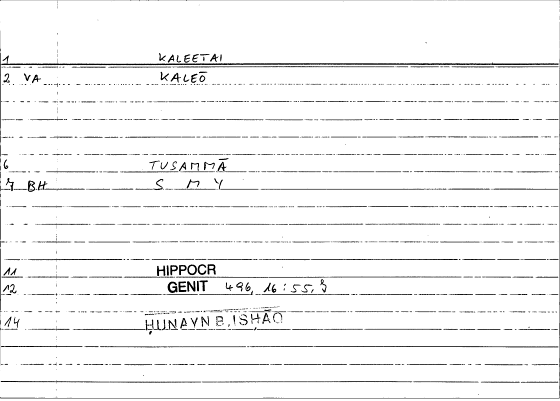 1 KALEETAI
2 VA KALEŌ
6 TUSAMMĀ
7 BH S M Y
11 HIPPOCR
12 GENIT 496, 16 : 55, 3
14 ḤUNAYN B. ISḤĀQ